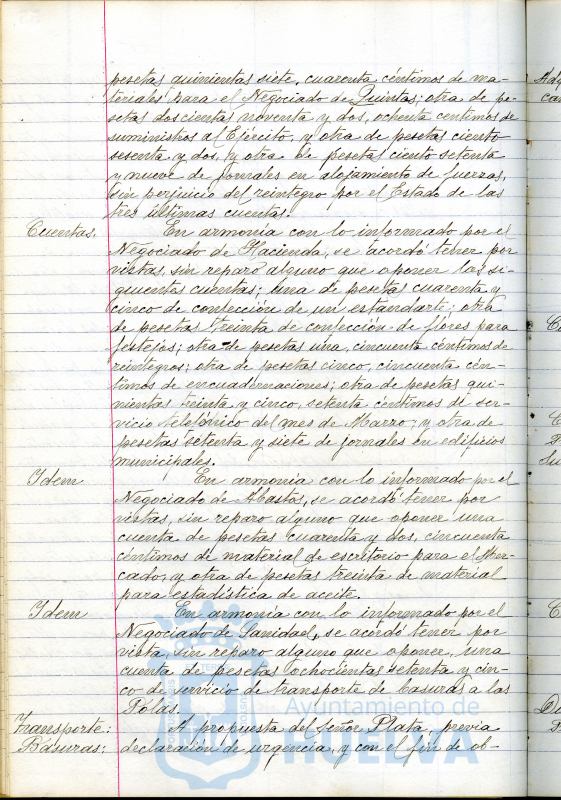 pesetas quinientas siete, cuarenta céntimos de ma-
teriales para el Negociado de Quintas; otra de pe-
setas doscientas noventa y dos, ochenta centimos de
suministros al Ejército, y otra de pesetas ciento
sesenta y dos, y otra de pesetas ciento setenta
y nueve de jornales en alojamiento de fuerzas,
sin perjuicio del reintegro por el Estado de las
tres últimas cuentas.
Cuentas. En armonia con lo informado por el
Negociado de Hacienda, se acordó tener por
vistas, sin reparo alguno que oponer las si-
guientes cuentas; una de pesetas cuarenta y
cinco de confección de un estandarte; otra
de pesetas treinta de confección de flores para
festejos; otra de pesetas una, cincuenta céntimos de
reintegros; otra de pesetas cinco, cincuenta cén-
timos de encuadernaciones; otra de pesetas qui-
nientas treinta y cinco, setenta céntimos de ser-
vicio telefónico del mes de Marzo; y otra de
pesetas setenta y siete de jornales en edificios
municipales.
Idem En armonia con lo informado por el
Negociado de Abastos, se acordó tener por
vistas, sin reparo alguno que oponer una
cuenta de pesetas cuarenta y dos, cincuenta
céntimos de material de escritorio para el Mer-
cado, y otra de pesetas treinta de material
para estadistica de aceite.
Idem En armonia con lo informado por el
Negociado de Sanidad, se acordó tener por
vista, sin reparo alguno que oponer, una
cuenta de pesetas ochocientas setenta y cin-
co de servicio de transporte de basuras a las
Polas.
Transporte: A propuesta del Señor Plata, previa
Basuras: declaración de urgencia, y con el fin de ob-
Ayuntamiento de
HUELVA